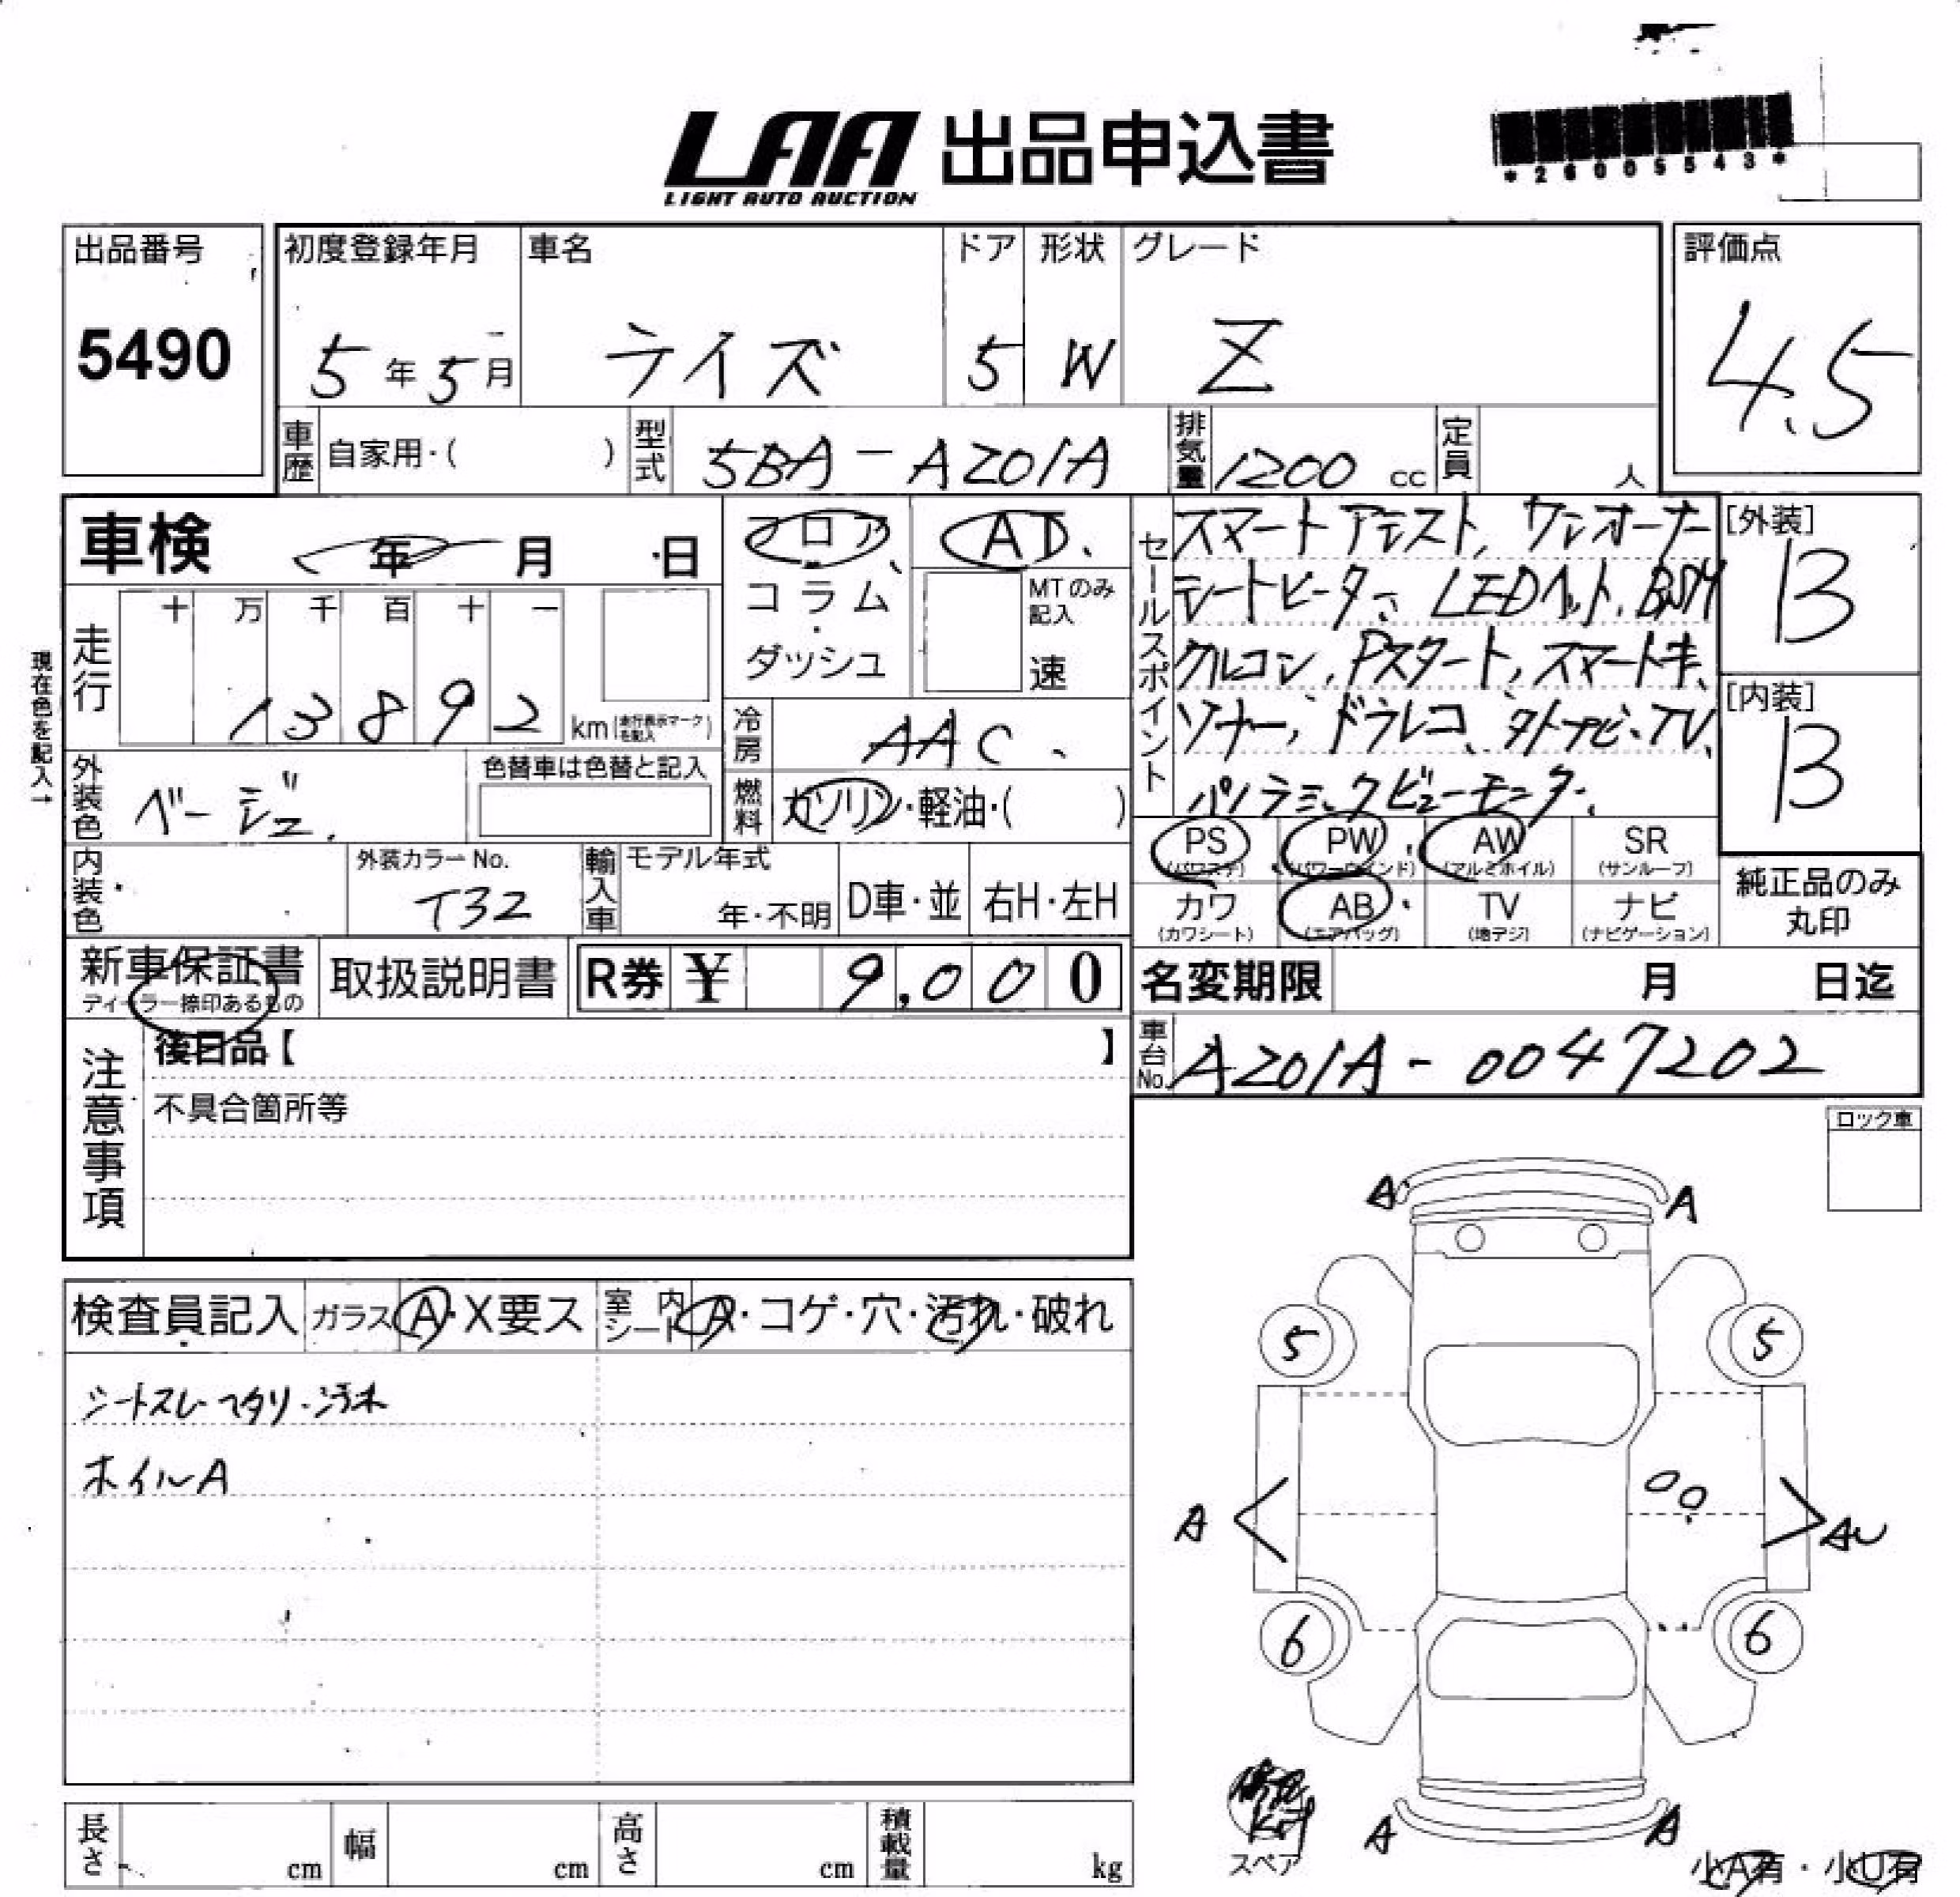 LAA 出品申込書
LIGHT AUTO AUCTION
*26005543*
出品番号
5490
初度登録年月
5年5月
車名
ライズ
ドア
5
形状
W
グレード
Z
評価点
4.5
車歴 自家用・( )
型式 5BA-A201A
排気量 1200 cc
定員 人
車検 年 月 日
フロア
コラム
ダッシュ
AT
MTのみ記入
速
セールスポイント
スマートアシスト、ワンオーナー
シートヒーター、LEDヘット、BSM
クルコン、Pスタート、スマートキー、
ソナー、ドラレコ、ナビ、TV、
パノラミックビューモニター、
[外装]
B
[内装]
B
現在色を記入→
走行 十 万 千 百 十 一
13892 km(走行表示マークを記入)
冷房 AAC
外装色 ベージュ
色替車は色替と記入
燃料 ガソリン・軽油・( )
内装色
外装カラーNo.
T32
輸入車
モデル年式
年・不明
D車・並
右H・左H
PS (パワステ)
PW (パワーウインド)
AW (アルミホイル)
SR (サンルーフ)
カワ (カワシート)
AB (エアバッグ)
TV (地デジ)
ナビ (ナビゲーション)
純正品のみ
丸印
新車保証書
ディーラー捺印あるもの
取扱説明書
R券 ¥ 9,000
名変期限 月 日迄
注意事項
後日品【 】
不具合箇所等
車台No. A201A-0047202
ロック車
検査員記入
ガラス A・X要ス
室内シート A・コゲ・穴・汚れ・破れ
シートスレ・ヘタリ・汚れ
ホイルA
A A
5 5
A AU
6 6
A A
スペア
小A有・小U有
長さ cm
幅 cm
高さ cm
積載量 kg